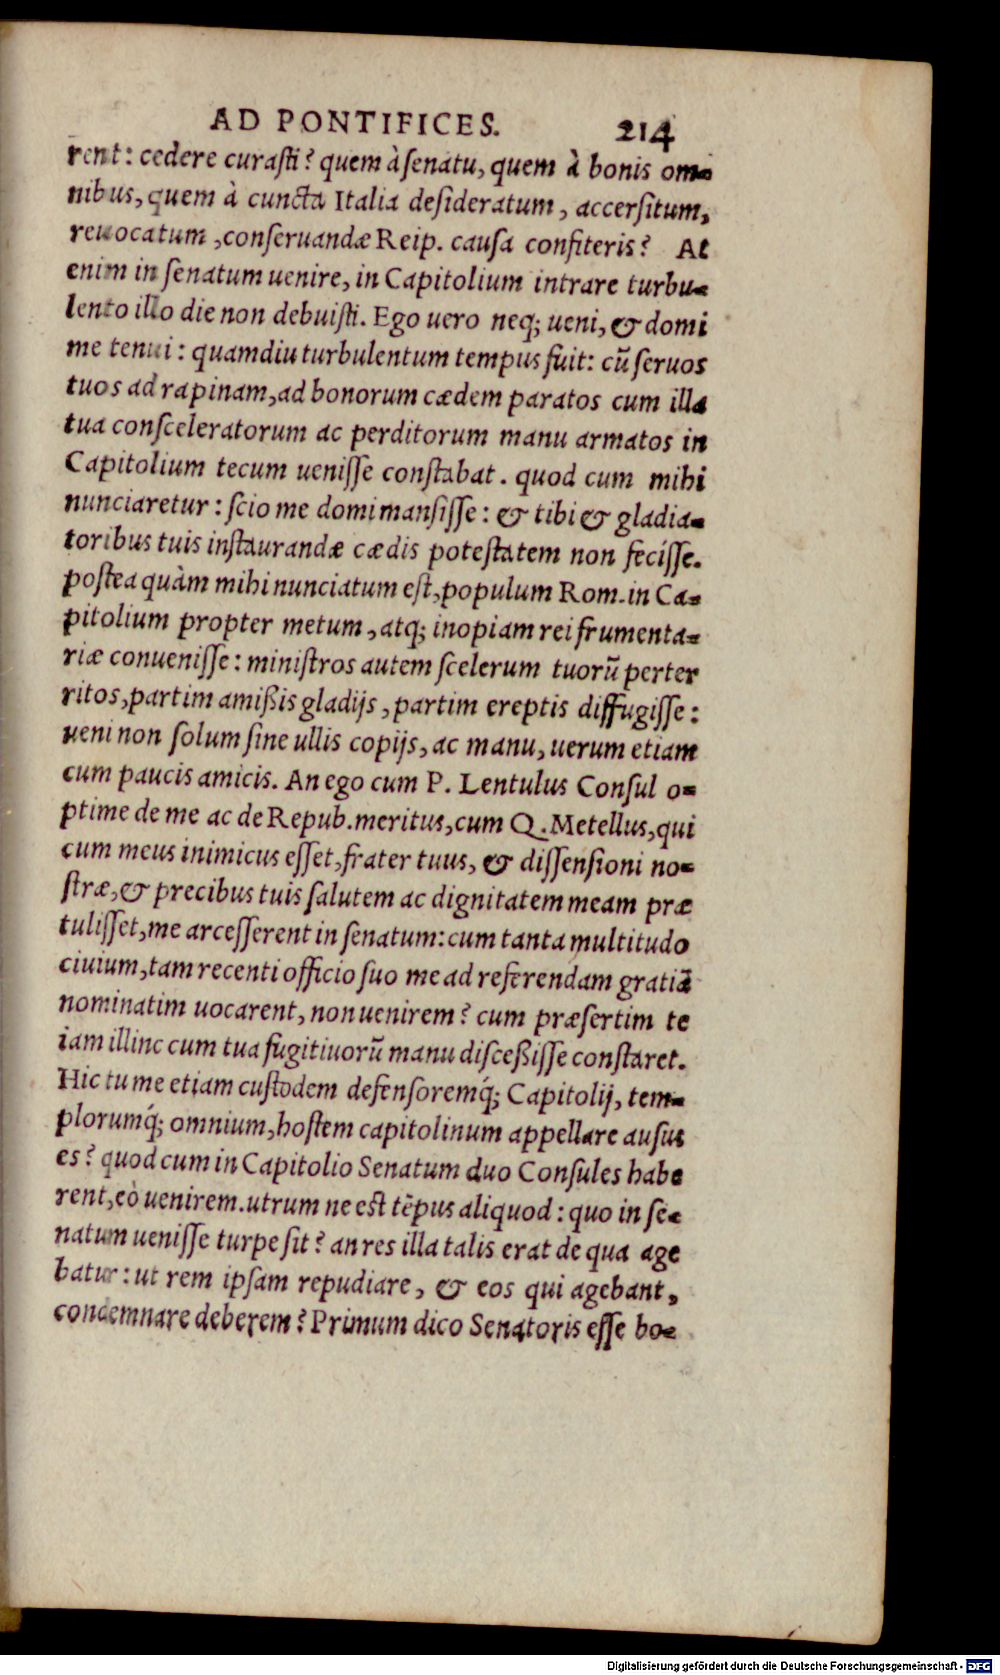 AD PONTIFICES. 214
rent: cedere curaſti? quem à ſenatu, quem à bonis om-
nibus, quem à cuncta Italia deſideratum, accerſitum,
reuocatum, conſeruandæ Reip. cauſa confiteris? At
enim in ſenatum uenire, in Capitolium intrare turbu-
lento illo die non debuiſti. Ego uero neq; ueni, & domi
me tenui: quamdiu turbulentum tempus fuit: cū ſeruos
tuos ad rapinam, ad bonorum cædem paratos cum illa
tua conſceleratorum ac perditorum manu armatos in
Capitolium tecum ueniſſe conſtabat. quod cum mihi
nunciaretur: ſcio me domi manſiſſe: & tibi & gladia-
toribus tuis inſtaurandæ cædis poteſtatem non feciſſe.
poſtea quàm mihi nunciatum eſt, populum Rom. in Ca-
pitolium propter metum, atq; inopiam rei frumenta-
riæ conueniſſe: miniſtros autem ſcelerum tuorū perter
ritos, partim amißis gladijs, partim ereptis diffugiſſe:
ueni non ſolum ſine ullis copijs, ac manu, uerum etiam
cum paucis amicis. An ego cum P. Lentulus Conſul o-
ptime de me ac de Repub. meritus, cum Q. Metellus, qui
cum meus inimicus eſſet, frater tuus, & diſſenſioni no-
ſtræ, & precibus tuis ſalutem ac dignitatem meam præ
tuliſſet, me arceſſerent in ſenatum: cum tanta multitudo
ciuium, tam recenti officio ſuo me ad referendam gratiā
nominatim uocarent, non uenirem? cum præſertim te
iam illinc cum tua fugitiuorū manu diſceßiſſe conſtaret.
Hic tu me etiam cuſtodem defenſoremq́; Capitolij, tem-
plorumq́; omnium, hoſtem capitolinum appellare auſus
es? quod cum in Capitolio Senatum duo Conſules habe
rent, eò uenirem. utrum ne eſt tēpus aliquod: quo in ſe-
natum ueniſſe turpe ſit? an res illa talis erat de qua age
batur: ut rem ipſam repudiare, & eos qui agebant,
condemnare deberem? Primum dico Senatoris eſſe bo-
Digitalisierung gefördert durch die Deutsche Forschungsgemeinschaft - DFG